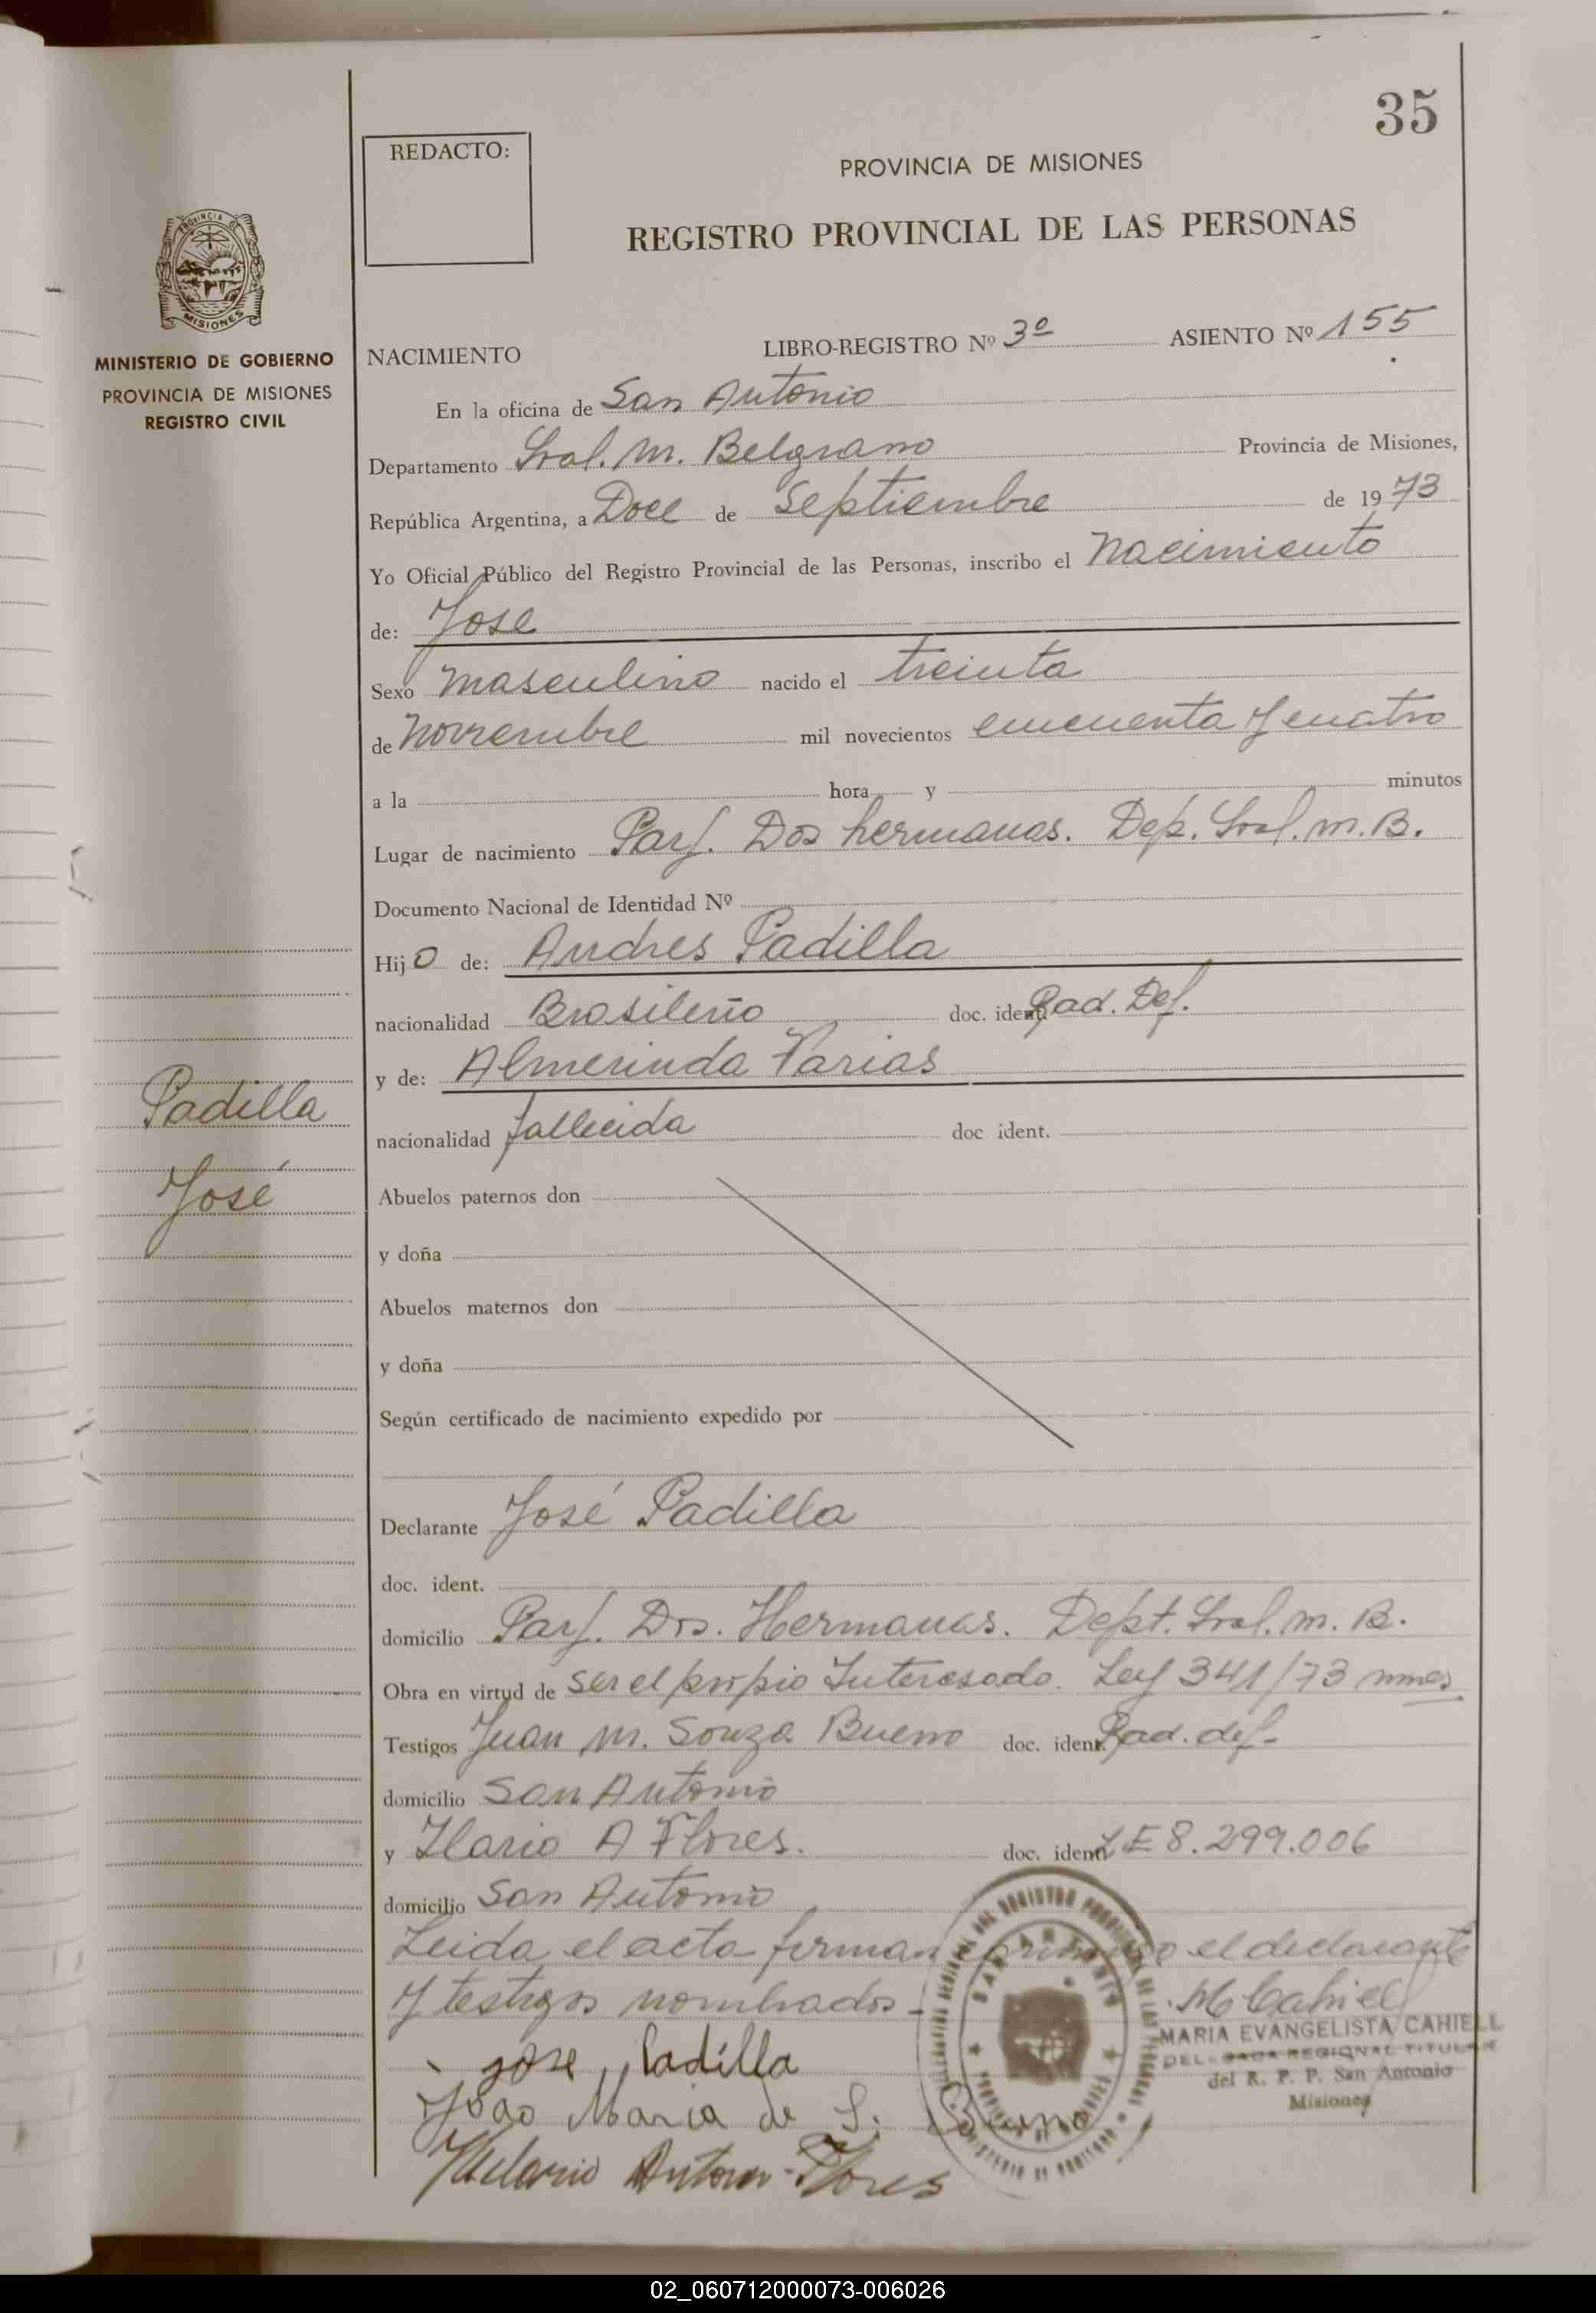 35
REDACTO:
PROVINCIA DE MISIONES
REGISTRO PROVINCIAL DE LAS PERSONAS
PROVINCIA DE
MISIONES
MINISTERIO DE GOBIERNO
PROVINCIA DE MISIONES
REGISTRO CIVIL
NACIMIENTO LIBRO-REGISTRO Nº 3º ASIENTO Nº 155
En la oficina de San Antonio
Departamento Gral. M. Belgrano Provincia de Misiones,
República Argentina, a Doce de Septiembre de 1973
Yo Oficial Público del Registro Provincial de las Personas, inscribo el Nacimiento
de: Jose
Sexo Masculino nacido el treinta
de Noviembre mil novecientos cincuenta y cuatro
a la hora y minutos
Lugar de nacimiento Parj. Dos hermanas. Dep. Gral. M. B.
Documento Nacional de Identidad Nº
Hijo de: Andres Padilla
nacionalidad Brasileño doc. ident. Rad. Def.
y de: Almerinda Farias
nacionalidad fallecida doc ident.
Padilla
José
Abuelos paternos don
y doña
Abuelos maternos don
y doña
Según certificado de nacimiento expedido por
Declarante José Padilla
doc. ident.
domicilio Parj. Dos. Hermanas. Dept. Gral. M. B.
Obra en virtud de ser el propio Interesado. Ley 341/73 mnes
Testigos Juan M. Souza Bueno doc. ident. Rad. def.
domicilio San Antonio
y Ilario A Flores. doc. ident. LE 8.299.006
domicilio San Antonio
Leida el acta firman conmigo el declarante
y testigos nombrados-
M Cahiell
MARIA EVANGELISTA CAHIELL
DELEGADA REGIONAL TITULAR
del R. P. P. San Antonio
Misiones
jose Padilla
João Maria de S. Bueno
Hilario Antonio Flores
02_060712000073-006026